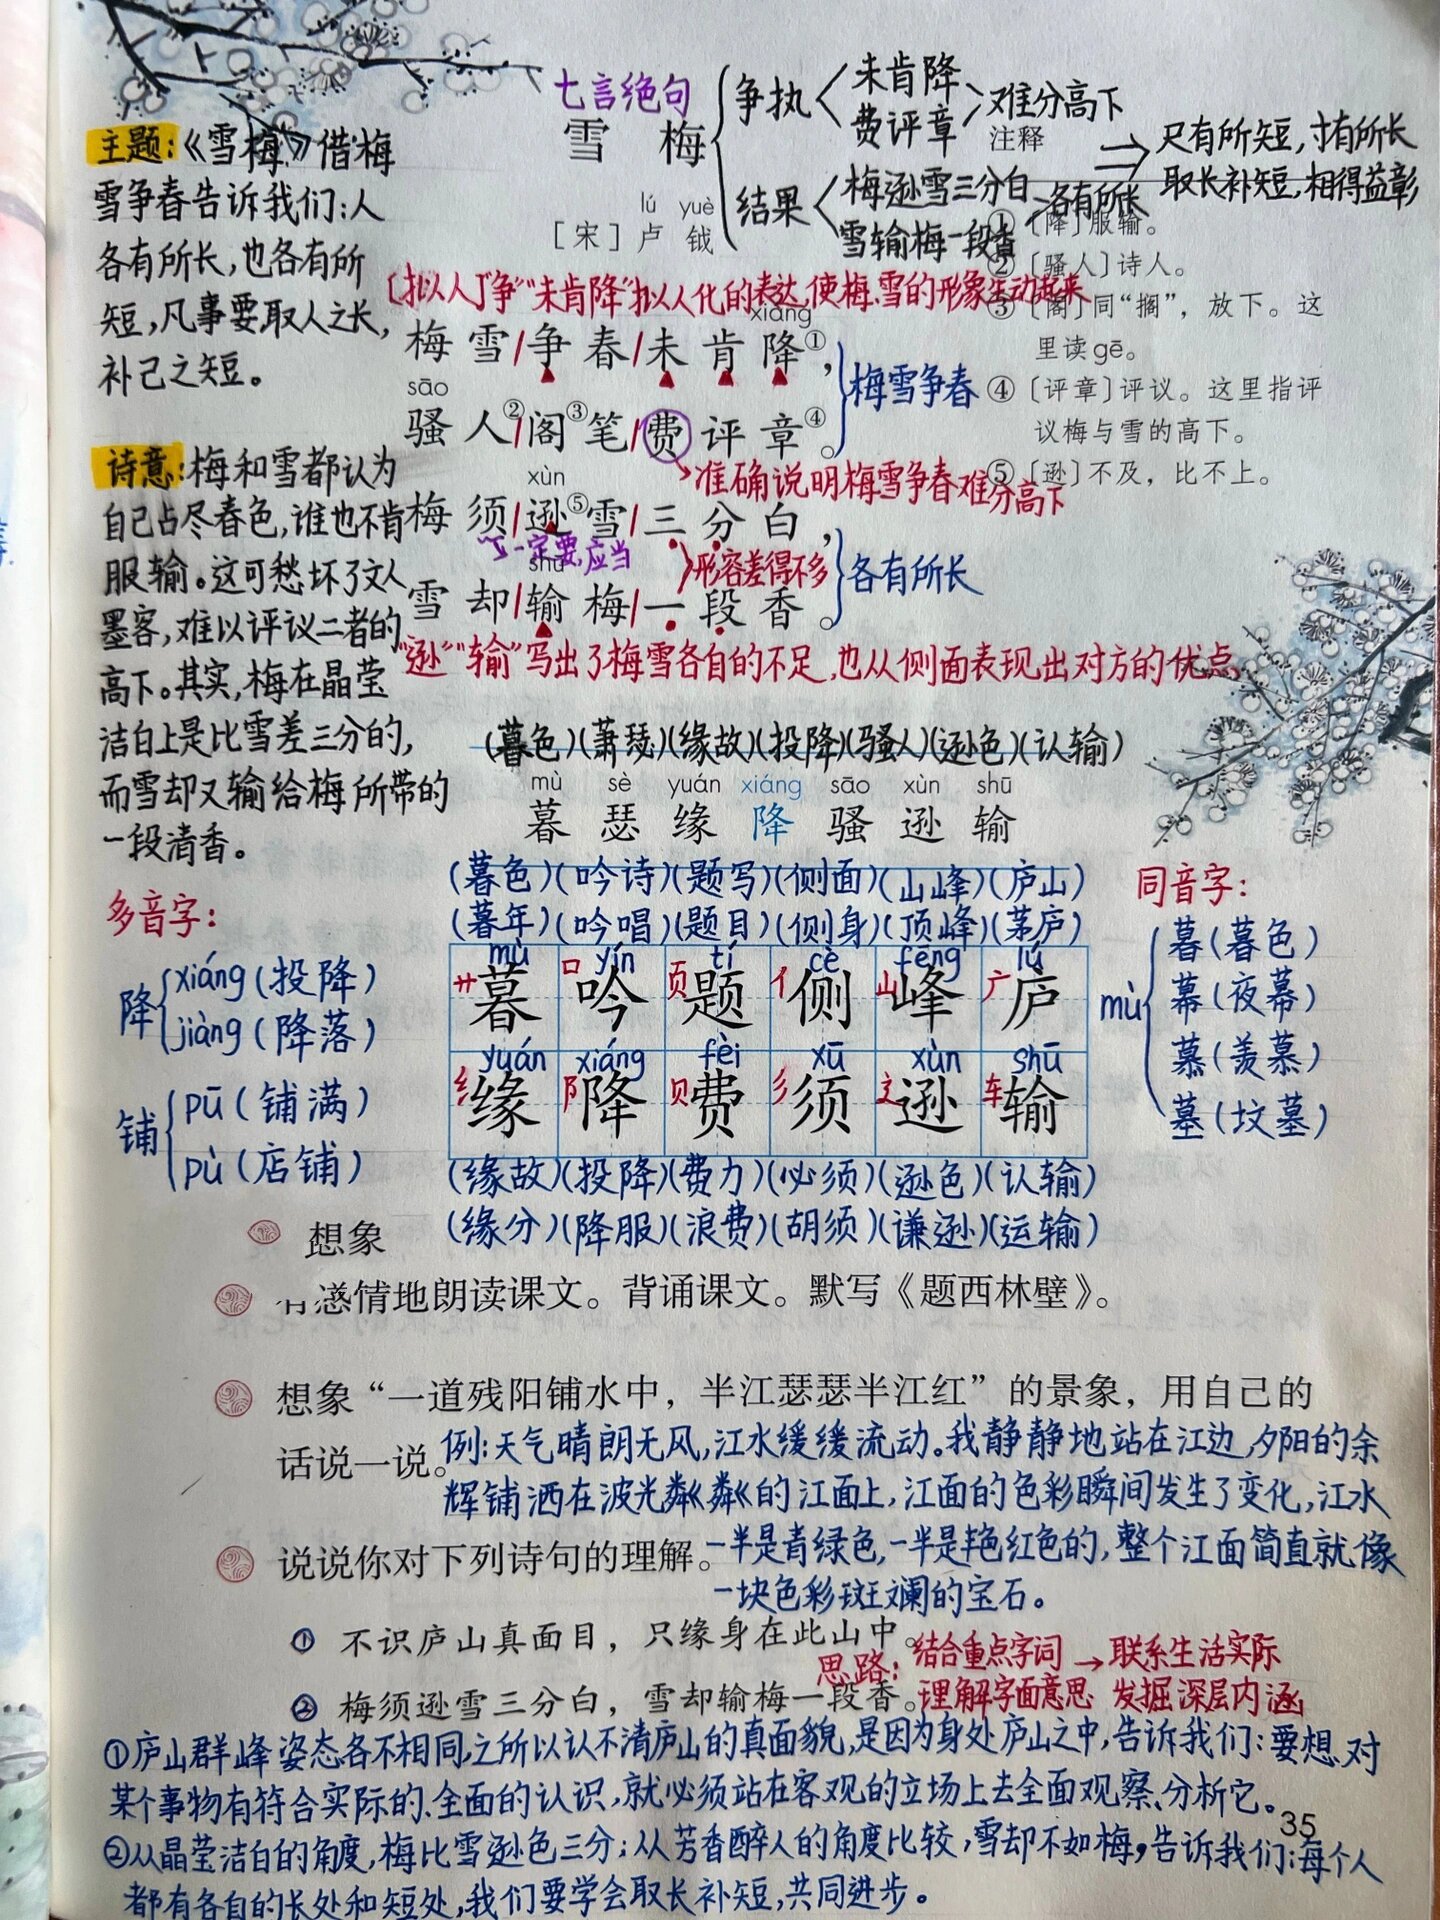 七言绝句
雪 梅
lú yuè
［宋］卢 钺
争执 未肯降 费评章 难分高下
结果 梅逊雪三分白 雪输梅一段香 各有所长
⇒ 尺有所短，寸有所长
取长补短，相得益彰
主题：《雪梅》借梅
雪争春告诉我们：人
各有所长，也各有所
短，凡事要取人之长，
补己之短。
诗意：梅和雪都认为
自己占尽春色，谁也不肯
服输。这可愁坏了文人
墨客，难以评议二者的
高下。其实，梅在晶莹
洁白上是比雪差三分的，
而雪却又输给梅所带的
一段清香。
注释
①〔降〕服输。
②〔骚人〕诗人。
③〔阁〕同“搁”，放下。这
里读gē。
④〔评章〕评议。这里指评
议梅与雪的高下。
⑤〔逊〕不及，比不上。
〔拟人〕“争”“未肯降”拟人化的表达，使梅、雪的形象生动起来
xiáng
梅雪/争春/未肯降①，
sāo
骚人②/阁③笔/费评章④。
梅雪争春
准确说明梅雪争春难分高下
xùn
梅须/逊⑤雪/三分白，
一定要，应当
形容差得不多
shū
雪却/输梅/一段香。
各有所长
“逊”“输”写出了梅雪各自的不足，也从侧面表现出对方的优点
(暮色)(萧瑟)(缘故)(投降)(骚人)(逊色)(认输)
mù sè yuán xiáng sāo xùn shū
暮 瑟 缘 降 骚 逊 输
(暮色)(吟诗)(题写)(侧面)(山峰)(庐山)
(暮年)(吟唱)(题目)(侧身)(顶峰)(茅庐)
mù yín tí cè fēng lú
艹暮 口吟 页题 亻侧 山峰 广庐
yuán xiáng fèi xū xùn shū
纟缘 阝降 贝费 彡须 辶逊 车输
(缘故)(投降)(费力)(必须)(逊色)(认输)
(缘分)(降服)(浪费)(胡须)(谦逊)(运输)
多音字：
降 xiáng(投降)
jiàng(降落)
铺 pū(铺满)
pù(店铺)
同音字：
mù 暮(暮色)
幕(夜幕)
慕(羡慕)
墓(坟墓)
想象
有感情地朗读课文。背诵课文。默写《题西林壁》。
想象“一道残阳铺水中，半江瑟瑟半江红”的景象，用自己的
话说一说。
例：天气晴朗无风，江水缓缓流动。我静静地站在江边，夕阳的余
辉铺洒在波光粼粼的江面上，江面的色彩瞬间发生了变化，江水
一半是青绿色，一半是艳红色的，整个江面简直就像
一块色彩斑斓的宝石。
说说你对下列诗句的理解。
① 不识庐山真面目，只缘身在此山中。
② 梅须逊雪三分白，雪却输梅一段香。
思路：结合重点字词 → 联系生活实际
理解字面意思 发掘深层内涵
①庐山群峰姿态各不相同，之所以认不清庐山的真面貌，是因为身处庐山之中，告诉我们：要想对
某个事物有符合实际的、全面的认识，就必须站在客观的立场上去全面观察、分析它。
②从晶莹洁白的角度，梅比雪逊色三分；从芳香醉人的角度比较，雪却不如梅，告诉我们：每个人
都有各自的长处和短处，我们要学会取长补短，共同进步。
35